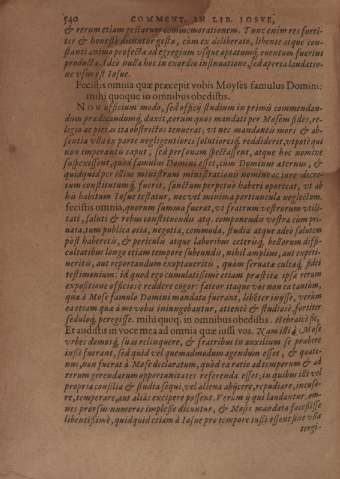 540 COMMENT. IN LIB. IOSVE,
& rerum etiam gestarum commemorationem. Tunc enim res forti-
ter & honestè dicuntur gesta, cùm ex deliberato, libente atque con-
stanti animo profecta ad egregium usque aptatumque euentum fuerint
producta. Ideo nulla hoc in exordio insinuatione, sed aperta laudatio-
ne usus est Iosue.
Fecistis omnia quæ præcepit vobis Moyses famulus Domini:
mihi quoque in omnibus obedistis.
NON officium modo, sed officij studium in primis commendan-
dum prædicandumque duxit, eorum quos mandati per Mosem fides, re-
ligio ac pietas ita obstrictos tenuerat, ut nec mandantis mors & ab-
sentia ulla ex parte negligentiores solutiores reddiderit, utpotè qui
non imperantis caput, sed personam spectassent, atque hoc nomine
suspexissent, quòd famulus Domini esset, cuius Dominus æternus, &
quidquid per illius ministrum ministrationis nomine ac iure decre-
tum constitutumque fuerit, sanctum perpetuò haberi oporteat, ut ab
his habitum Iosue testatur, nec vel minima portiuncula neglectum.
fecistis omnia, quorum summa fuerat, ut fratrum vestrorum utili-
tati, saluti & rebus constituendis atque componendis vestra cùm pri-
uata, tum publica otia, negotia, commoda, studia atque adeò salutem
post haberetis, & periculis atque laboribus ceterisque bellorum diffi-
cultatibus longe etiam tempore subeundis, nihil amplius, aut expeti-
ueritis, aut reportandum exoptaueritis, quàm seruatæ cultæque fidei
testimonium: id quod ego cumulatissimè etiam præstita ipsa rerum
expositione officiose reddere cogor: fateor itaque vos non ea tantùm,
quæ à Mose famulo Domini mandata fuerant, libenter iuuisse, verùm
ea etiam quæ à me vobis iniungebantur, attentè & studiosè fortiter
seduloque peregisse. mihi quoque in omnibus obedistis. Hebraicè sic,
Et audistis in voce mea ad omnia quæ iussi vos. Nam illi à Mose
urbes domosque suas relinquere, & fratribus in auxilium se præbere
iussi fuerant, sed quid vel quemadmodum agendum esset, & quate-
nus, non fuerat à Mose declaratum, quòd ea ratio ad temporum & ad
rerum gerendarum opportunitates referenda esset, in quibus illi vel
propria consilia & studia sequi, vel aliena abijcere, repudiare, incusa-
re, temperare, aut alias excipere possent. Verùm ij qui laudantur, om-
nes prorsus numeros implesse dicuntur, & Mosis mandata fecisse
libentissimè, quidquid etiam à Iosue pro tempore iussi essent sine ulla
tergi-